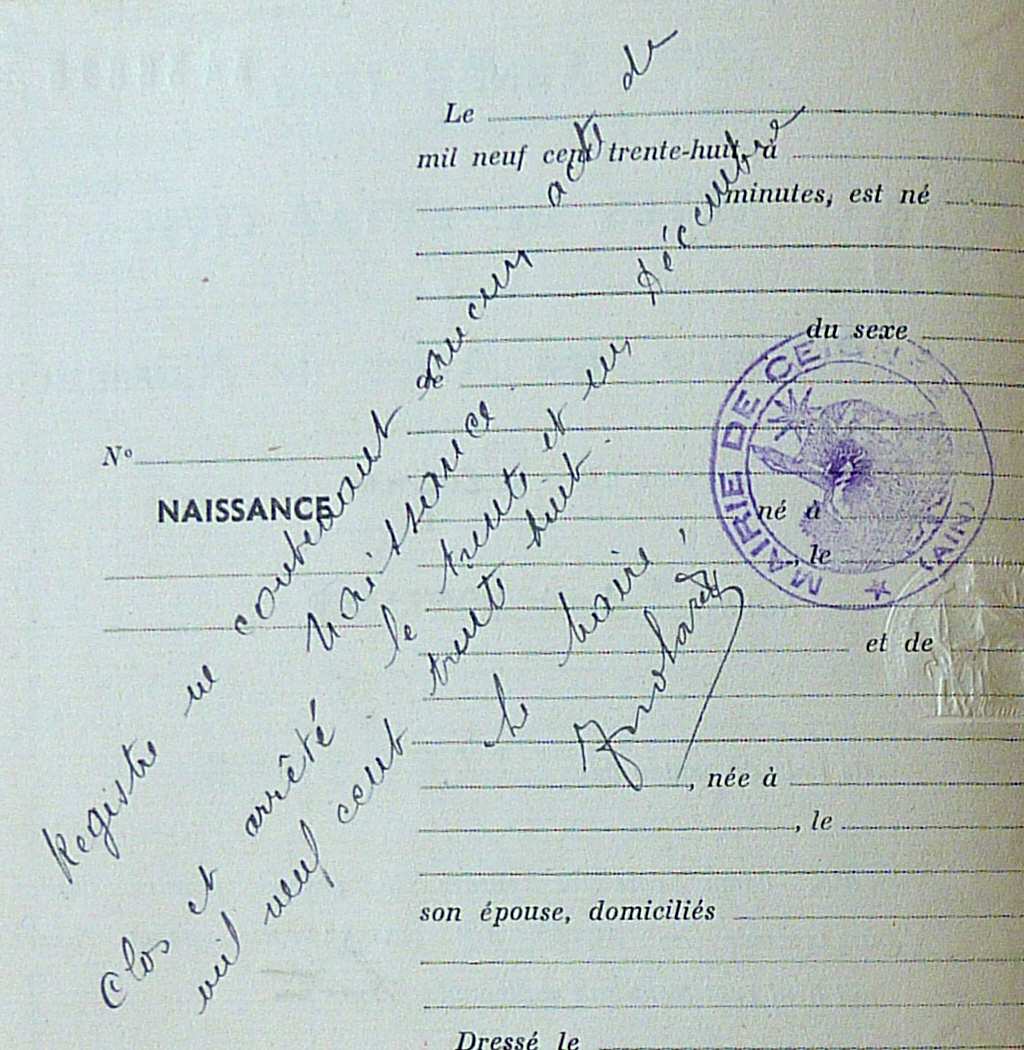 Le
mil neuf cent trente-huit, à
minutes, est né
du sexe
de
No
NAISSANCE
né à
, le
et de
, née à
, le
son épouse, domiciliés
Dressé le
Registre ne contenant aucun acte de
naissance
Clos et arrêté le trente et un Décembre
mil neuf cent trente huit.
Le Maire,
MAIRIE DE (AIN)